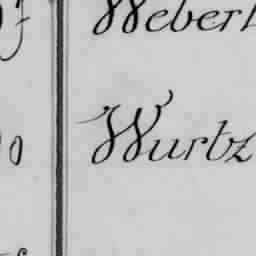 Weberl
Wurtz